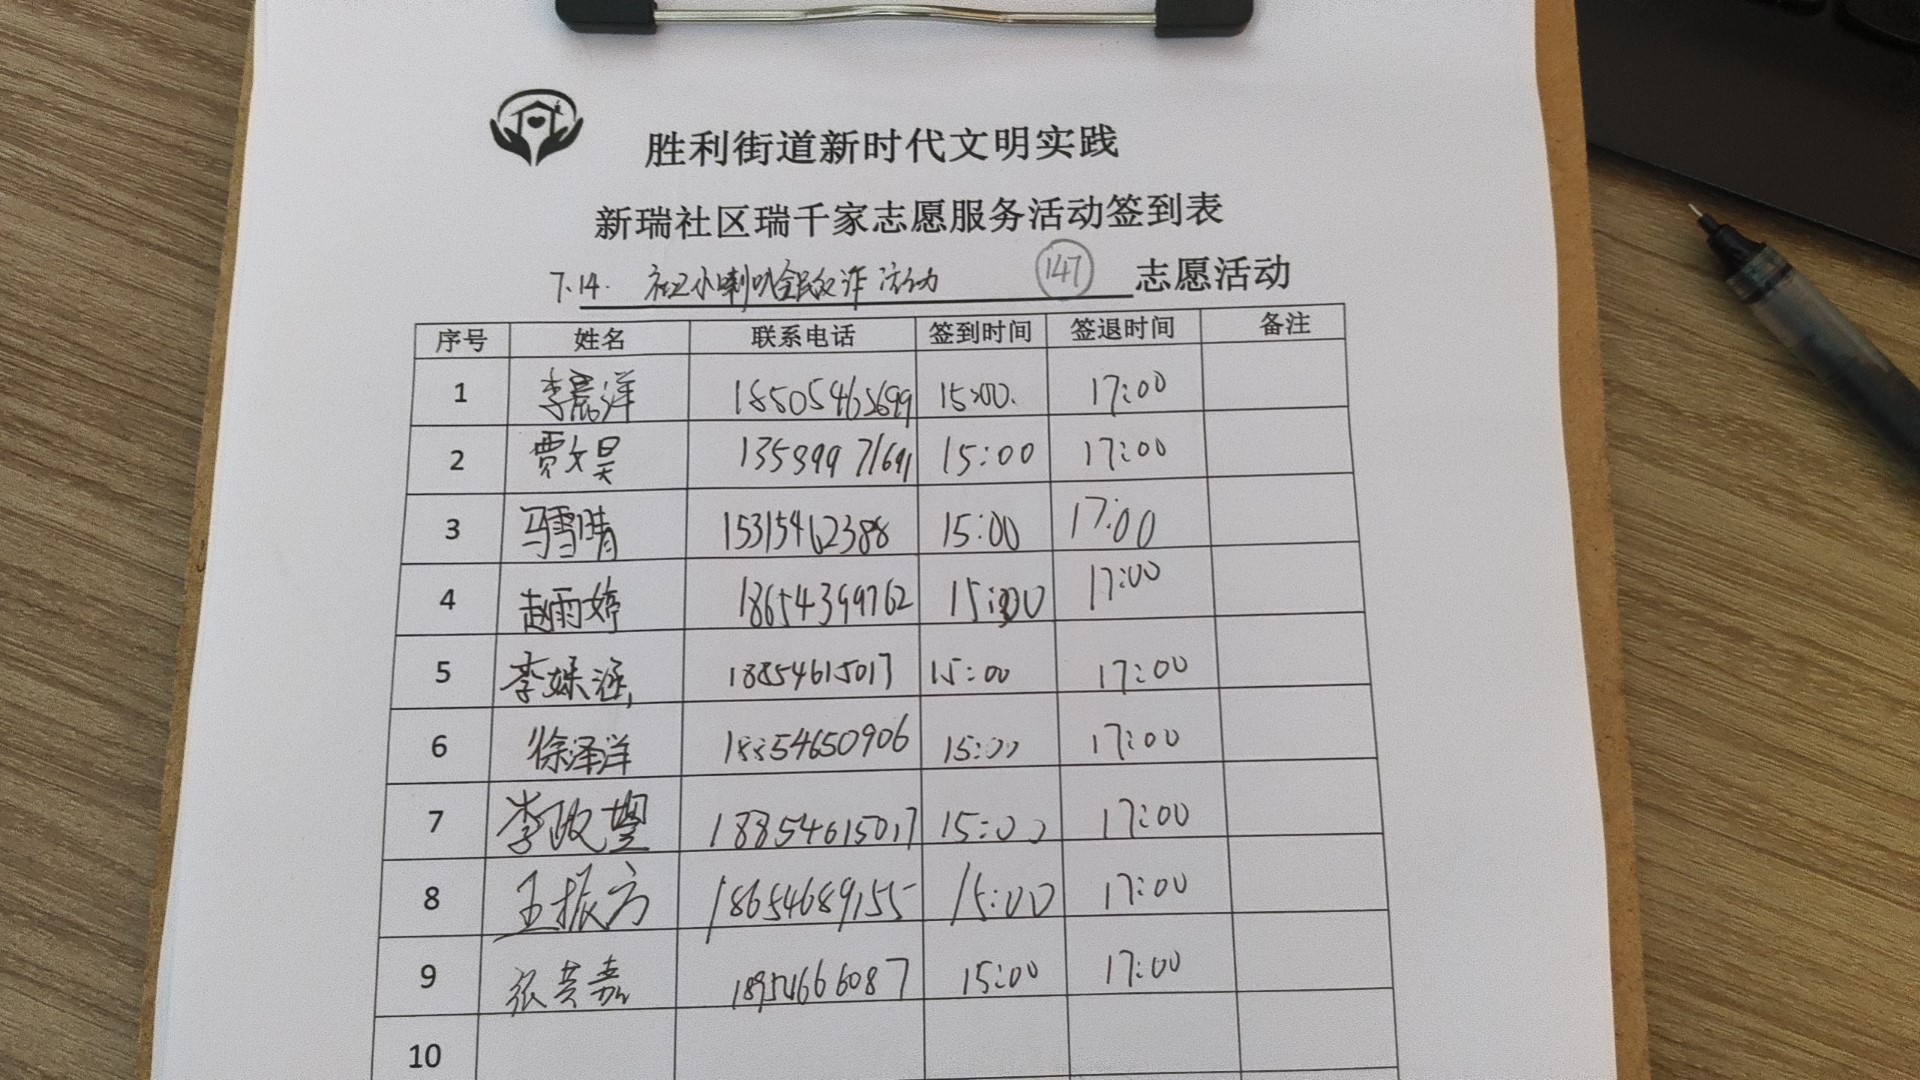 胜利街道新时代文明实践
新瑞社区瑞千家志愿服务活动签到表
7.14. 社区小喇叭全民反诈活动 147 志愿活动
序号 姓名 联系电话 签到时间 签退时间 备注
1 李晨洋 18505465699 15:00. 17:00
2 贾文昊 13589971691 15:00 17:00
3 马雪晴 15315462388 15:00 17:00
4 赵雨婷 18654399762 15:00 17:00
5 李姝涵 18854615017 15:00 17:00
6 徐泽洋 18854650906 15:00 17:00
7 李政 18854615017 15:00 17:00
8 王振方 18654689155 15:00 17:00
9 张芸嘉 18954666087 15:00 17:00
10